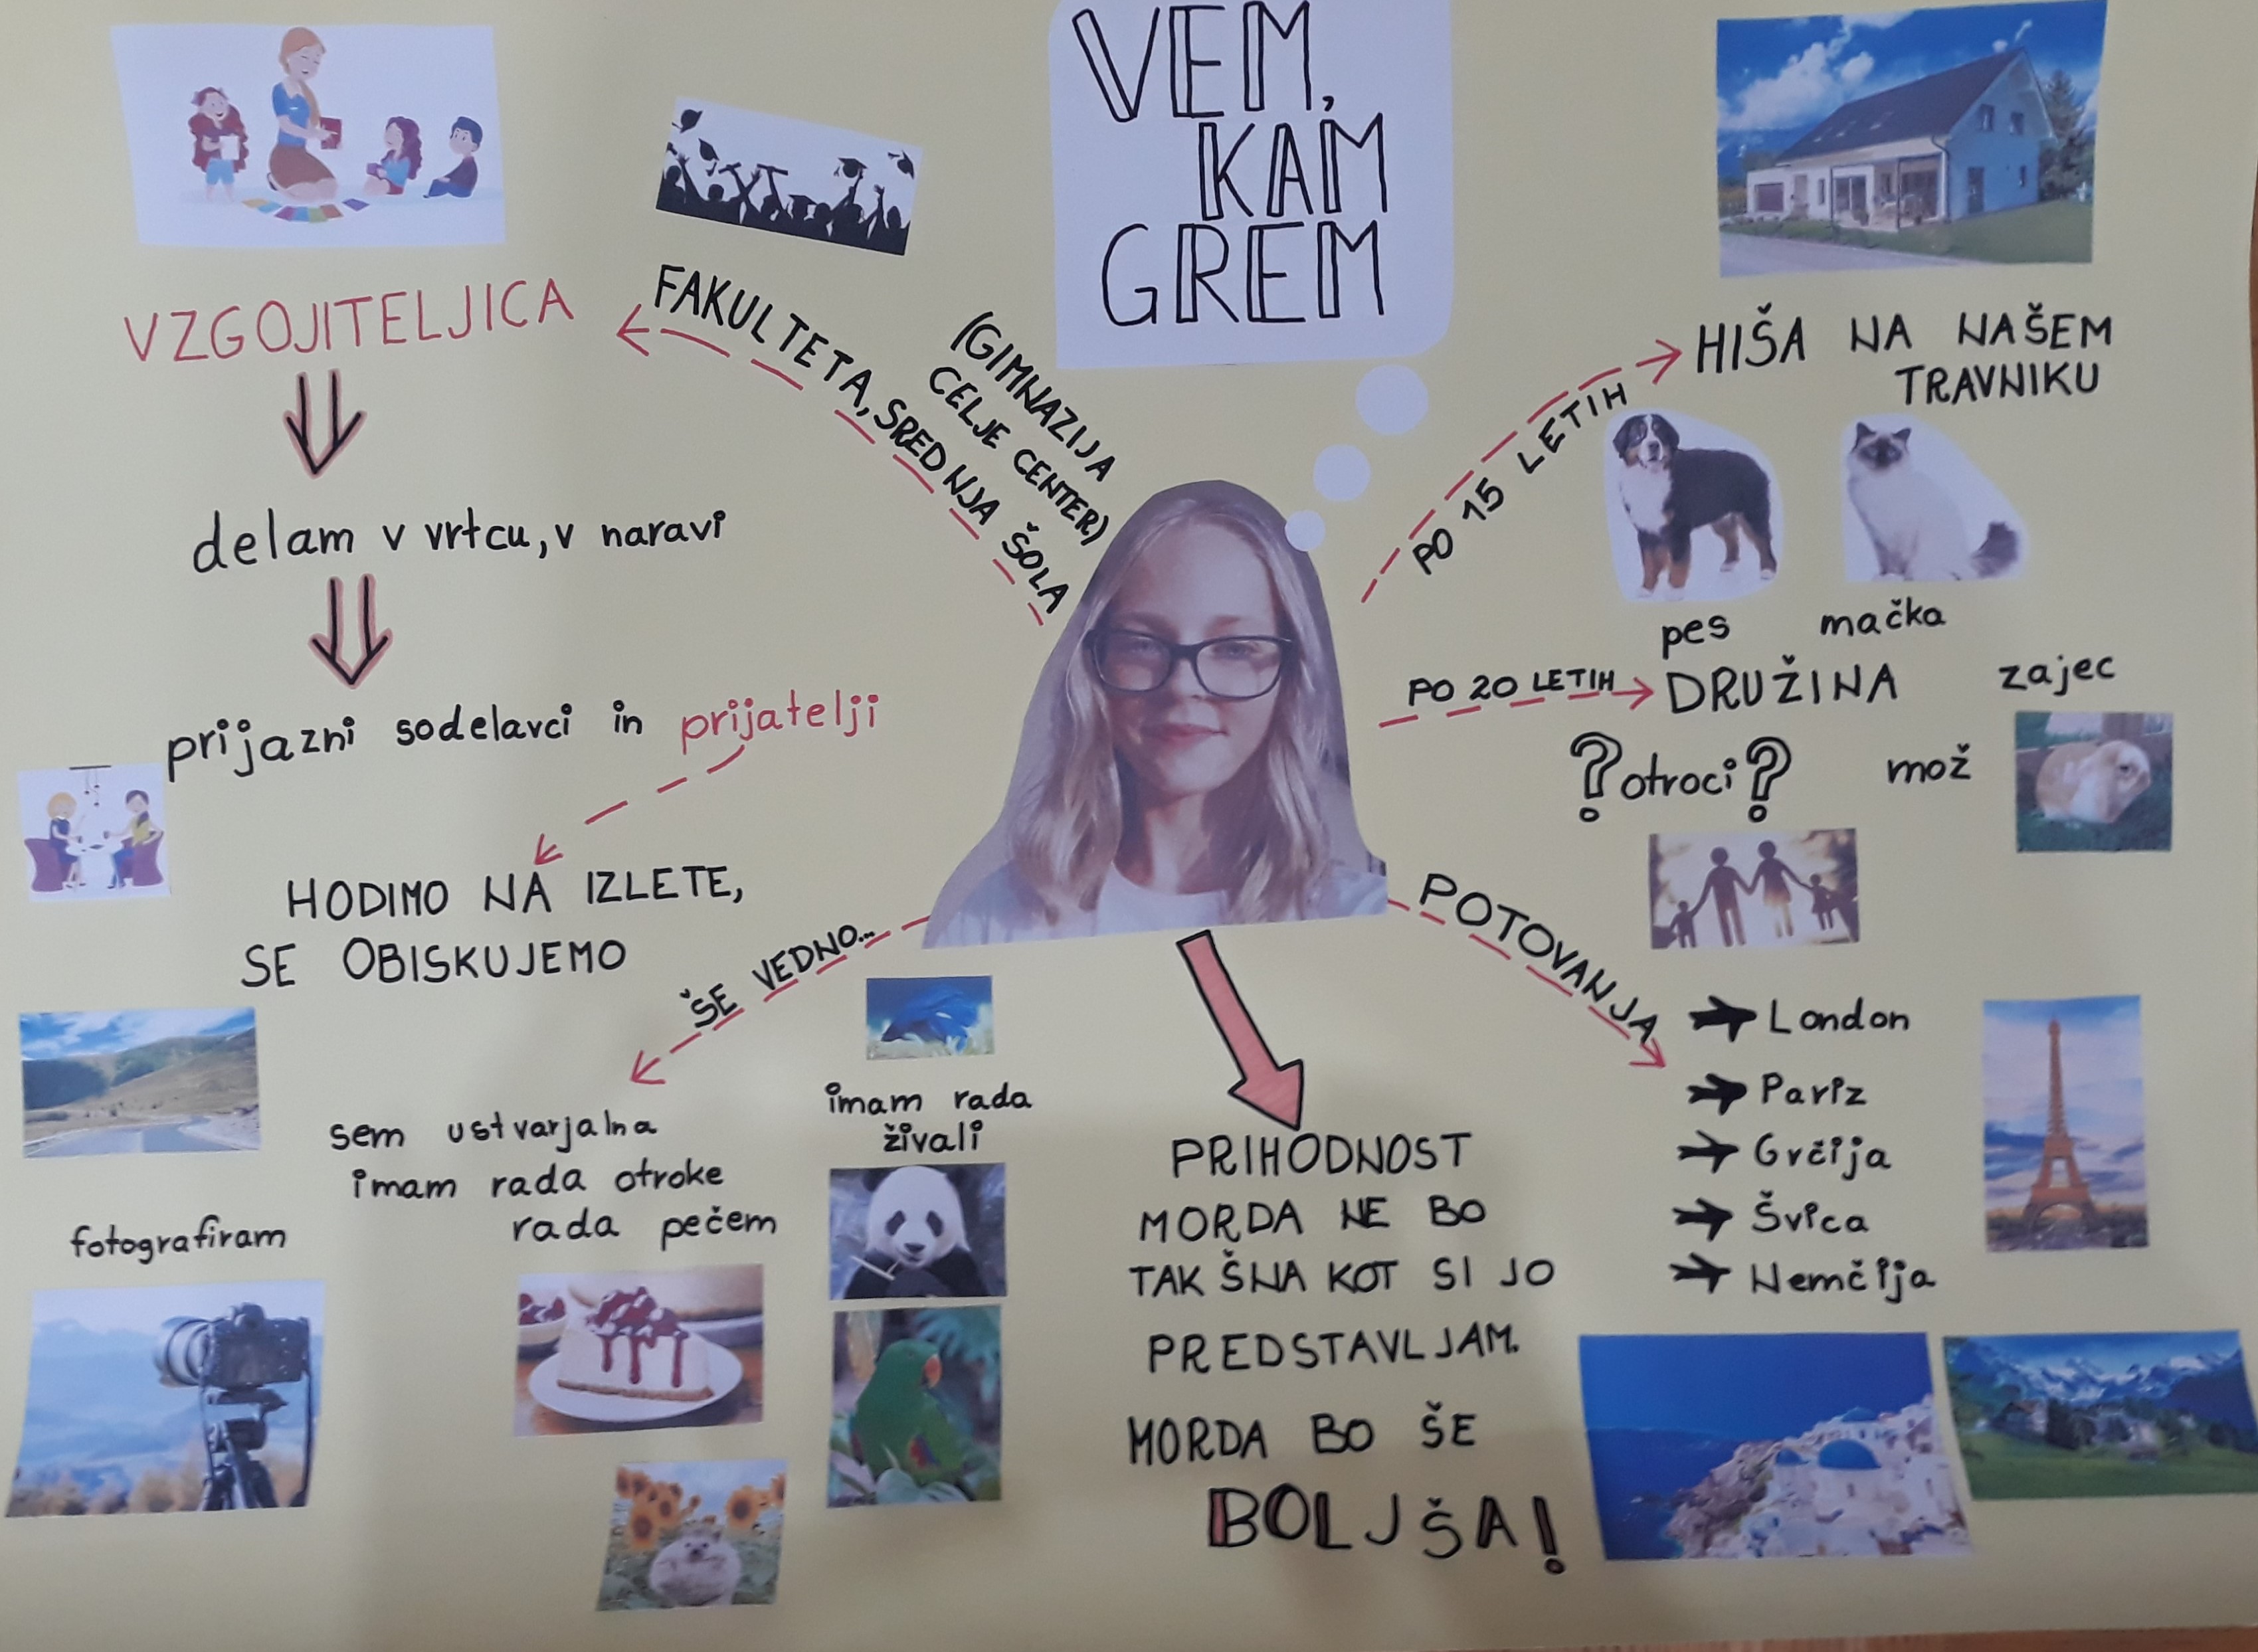 VEM,
KAM
GREM
VZGOJITELJICA
FAKULTETA, SREDNJA ŠOLA
(GIMNAZIJA
CELJE CENTER)
delam v vrtcu, v naravi
prijazni sodelavci in prijatelji
HODIMO NA IZLETE,
SE OBISKUJEMO
PO 15 LETIH
HIŠA NA NAŠEM
TRAVNIKU
pes
mačka
zajec
PO 20 LETIH
DRUŽINA
?otroci?
mož
ŠE VEDNO...
sem ustvarjalna
imam rada otroke
rada pečem
fotografiram
imam rada
živali
POTOVANJA
London
Pariz
Grčija
Švica
Nemčija
PRIHODNOST
MORDA NE BO
TAKŠNA KOT SI JO
PREDSTAVLJAM.
MORDA BO ŠE
BOLJŠA!